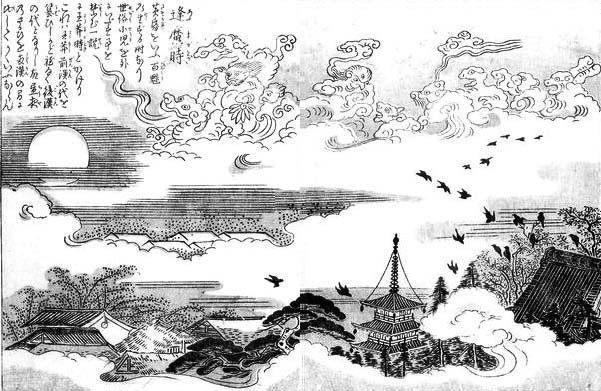 逢魔時
黄昏をいふ百魅
の生ずる時なり
世俗小児を外
にいだす事を
禁む一説
に王莽時とかけり
これは王莽前漢の代を
簒ひしかど程なく後漢
の代となりし故昼夜
のさかひを両漢の間に
比してかくいふならん